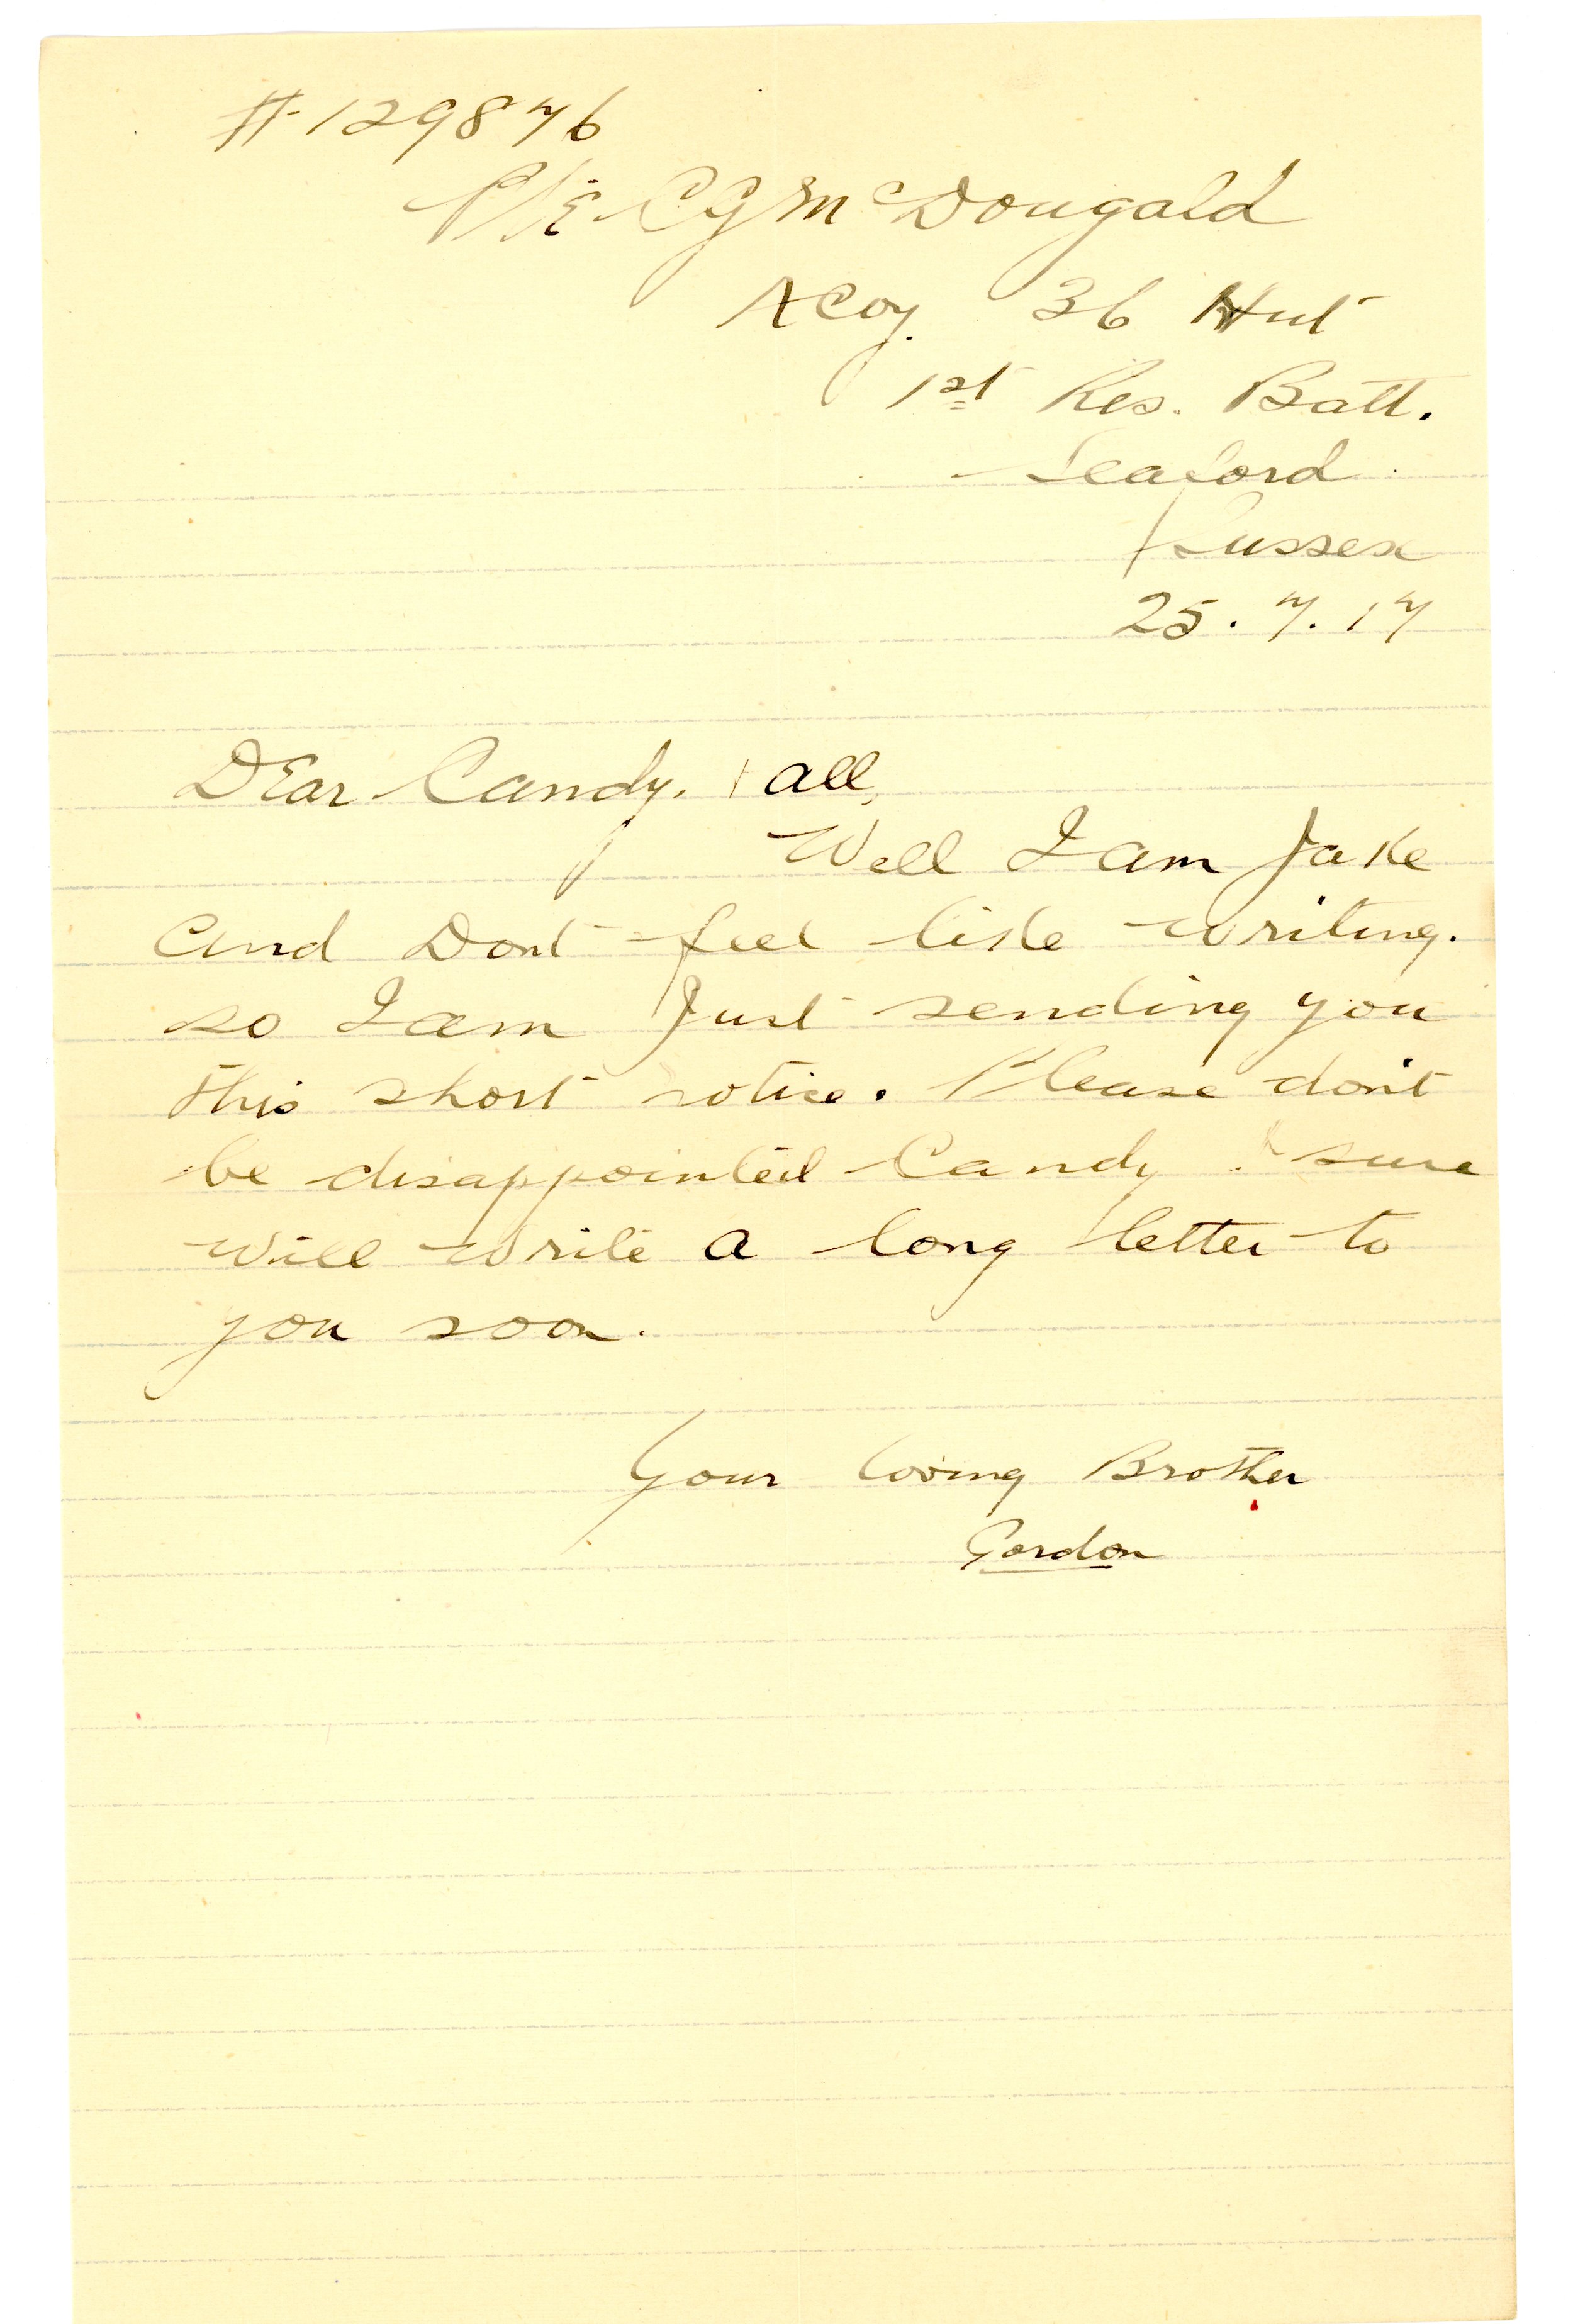 #129876
Pte CG McDougald
A Coy. 36 Hut
1st Res. Batt.
Seaford
Sussex
25.7.17
Dear Candy. + all,
Well I am Jake
and Dont feel like writing.
so I am Just sending you
this short notice. Please don't
be disappointed Candy. I sure
will write a long letter to
you soon.
Your loving Brother
Gordon